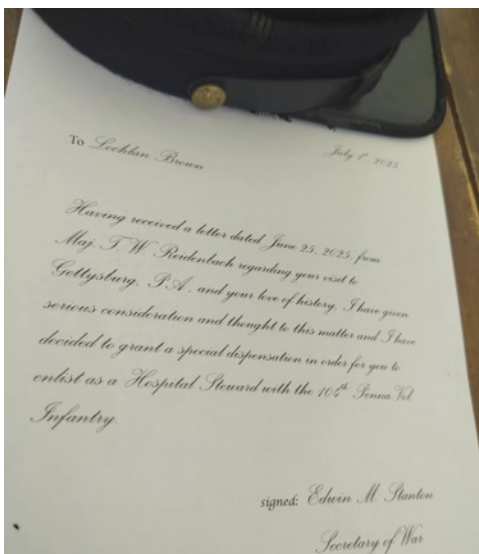 To Lochlan Brown
July 1st, 2025
Having received a letter dated June 25, 2025, from
Maj. T. W. Reidenbach regarding your visit to
Gettysburg, P.A. and your love of history, I have given
serious consideration and thought to this matter and I have
decided to grant a special dispensation in order for you to
enlist as a Hospital Steward with the 104th Penna. Vol.
Infantry.
signed: Edwin M. Stanton
Secretary of War